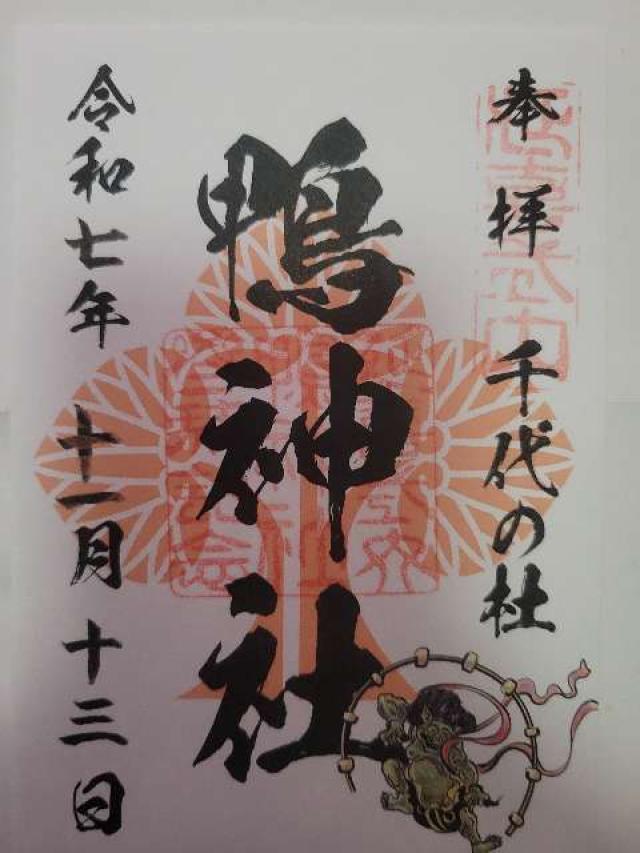 奉拝 千代の杜
鴨神社
令和七年 十一月 十三日